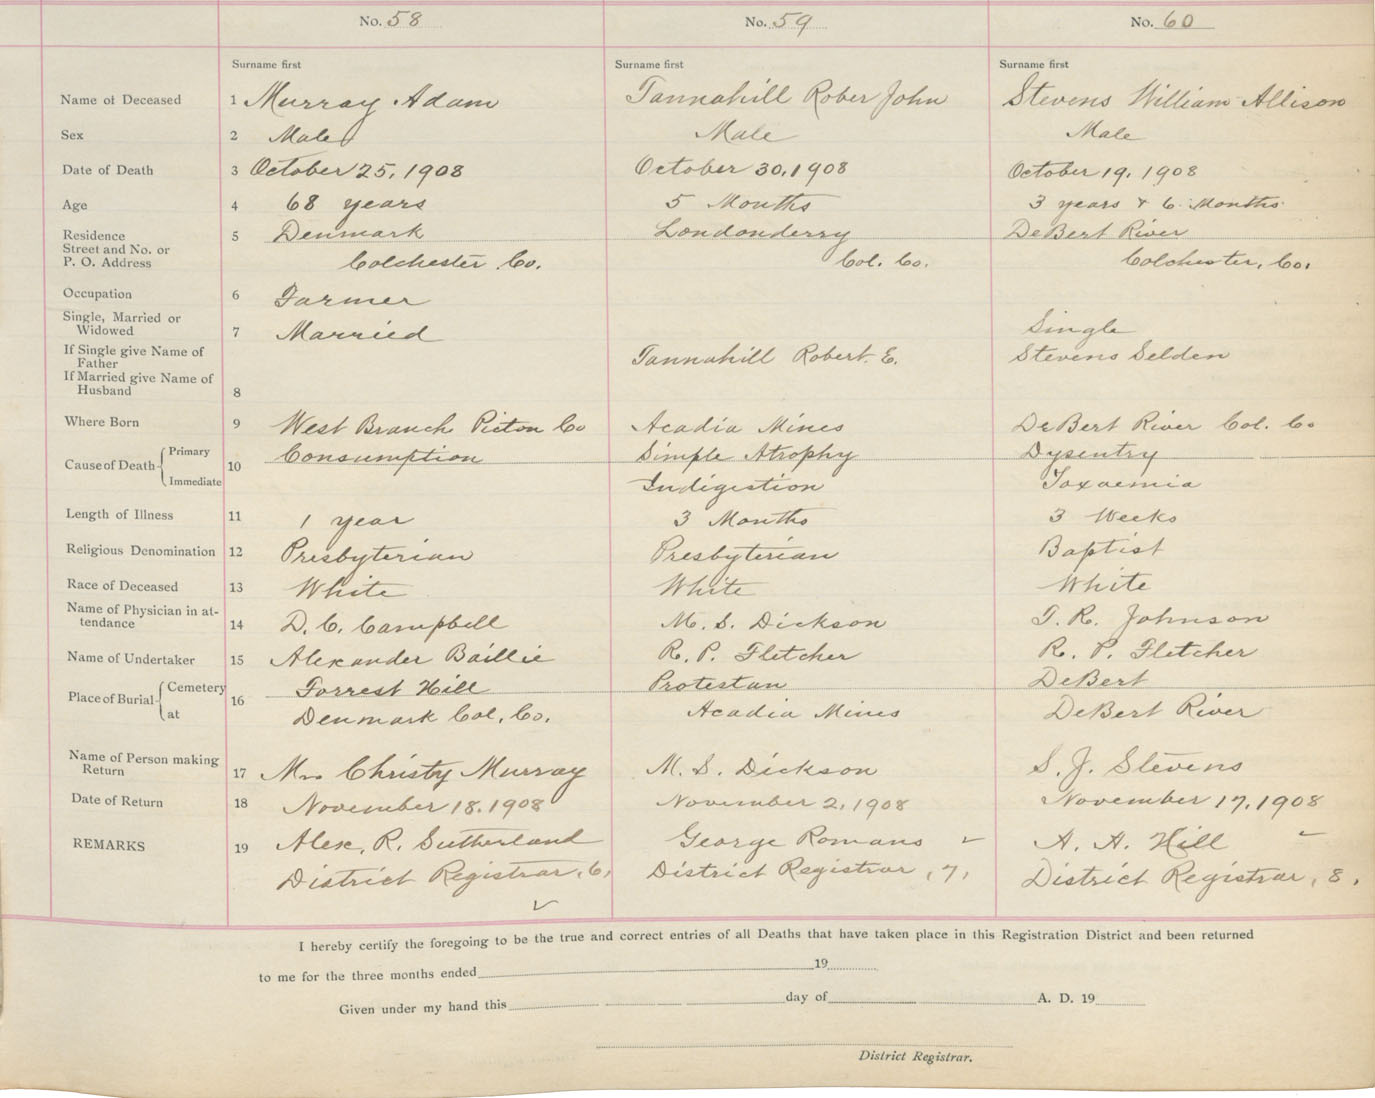 No. 58 No. 59 No. 60
Surname first Surname first Surname first
Name of Deceased 1 Murray Adam Tannahill Rober John Stevens William Allison
Sex 2 Male Male Male
Date of Death 3 October 25, 1908 October 30, 1908 October 19, 1908
Age 4 68 years 5 Months 3 years & 6 Months
Residence 5 Denmark Londonderry DeBert River
Street and No. or
P. O. Address Colchester Co. Col. Co. Colchester, Co.
Occupation 6 Farmer
Single, Married or
Widowed 7 Married Single
If Single give Name of
Father Tannahill Robert E. Stevens Selden
If Married give Name of
Husband 8
Where Born 9 West Branch Picton Co Acadia Mines DeBert River Col. Co
Cause of Death Primary 10 Consumption Simple Atrophy Dysentry
Immediate Indigestion Toxaemia
Length of Illness 11 1 year 3 Months 3 Weeks
Religious Denomination 12 Presbyterian Presbyterian Baptist
Race of Deceased 13 White White White
Name of Physician in at-
tendance 14 D. C. Campbell M. S. Dickson T. R. Johnson
Name of Undertaker 15 Alexander Baillie R. P. Fletcher R. P. Fletcher
Place of Burial Cemetery 16 Forrest Hill Protestan DeBert
at Denmark Col. Co. Acadia Mines DeBert River
Name of Person making
Return 17 Mrs Christy Murray M. S. Dickson S. J. Stevens
Date of Return 18 November 18, 1908 November 2, 1908 November 17, 1908
REMARKS 19 Alex. R. Sutherland George Romans ✓ A. A. Hill ✓
District Registrar, 6, District Registrar, 7, District Registrar, 8,
✓
I hereby certify the foregoing to be the true and correct entries of all Deaths that have taken place in this Registration District and been returned
to me for the three months ended 19
Given under my hand this day of A. D. 19
District Registrar.